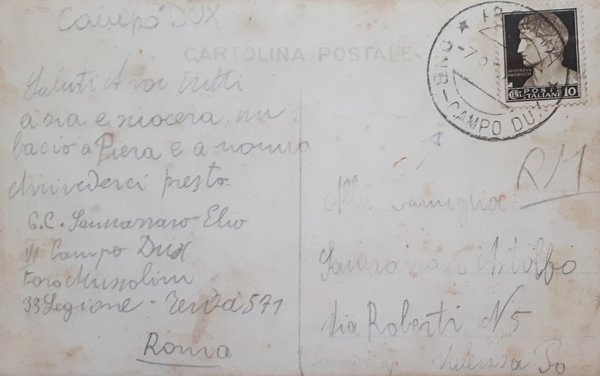 Campo DUX
CARTOLINA POSTALE
Saluti A voi tutti
a zia e suocera, un
bacio a Piera e a nonna
Arrivederci presto.
C.C. Sannazzaro Elio
VI Campo Dux
Foro Mussolini
33 Legione - Tenda 571
Roma
ONB - CAMPO DUX
POSTE
ITALIANE 10
RM
Alla Famiglia
Sannazzaro Astolfo
Via Roberti N 5
Valenza Po